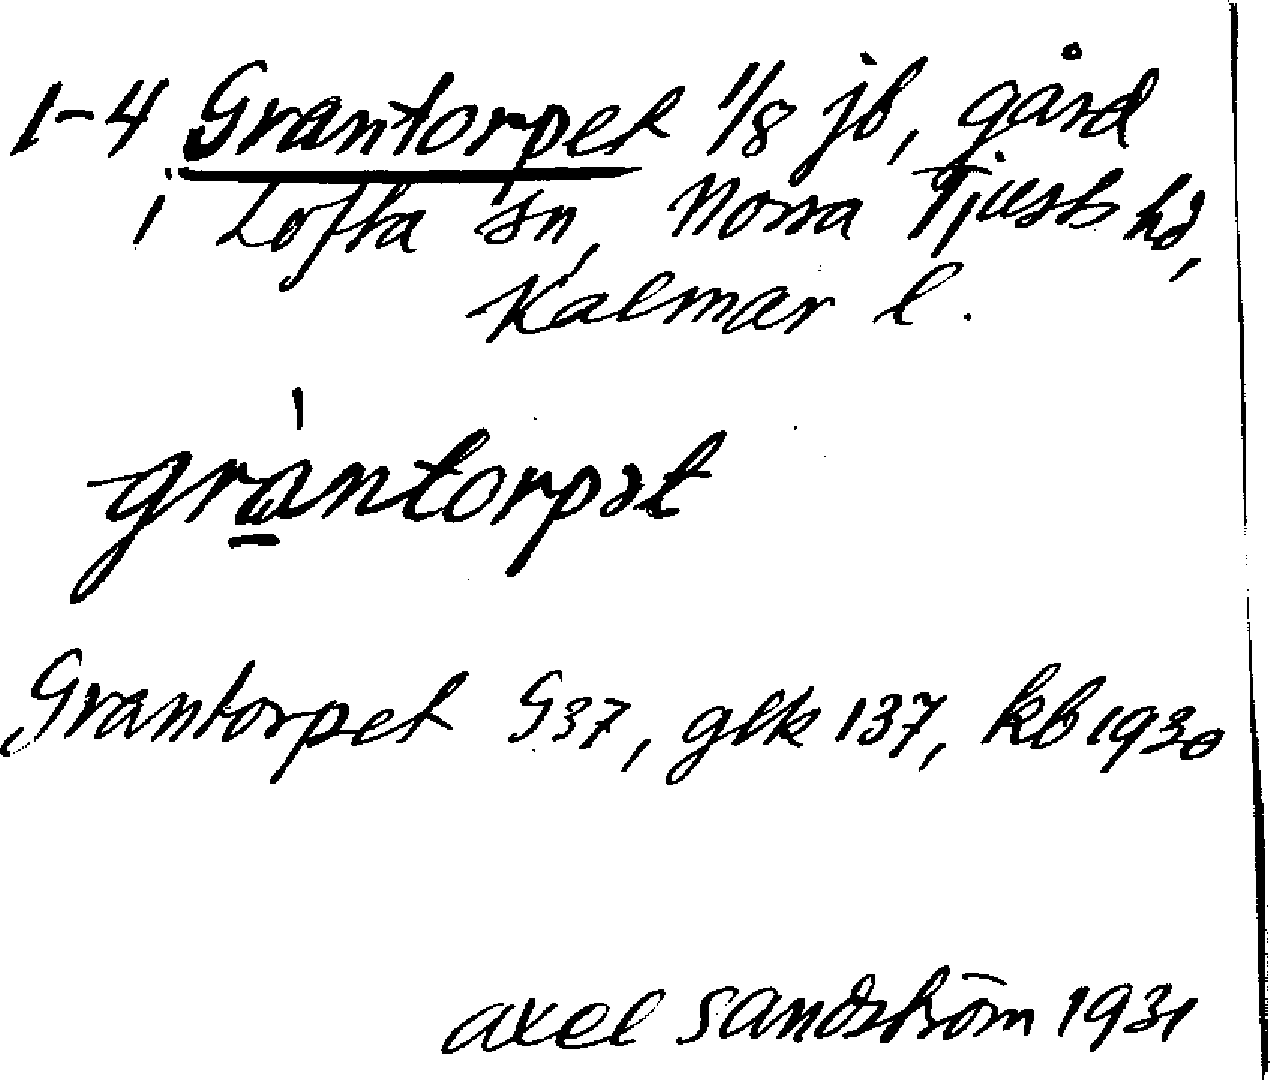 1-4 Grantorpet 1/8 jb, gård
i Lofta sn, Norra Tjusts hd,
Kalmar l.
gra̱̍ntorpət
Grantorpet G37, glk 137, kb 1930
Axel Sandström 1931